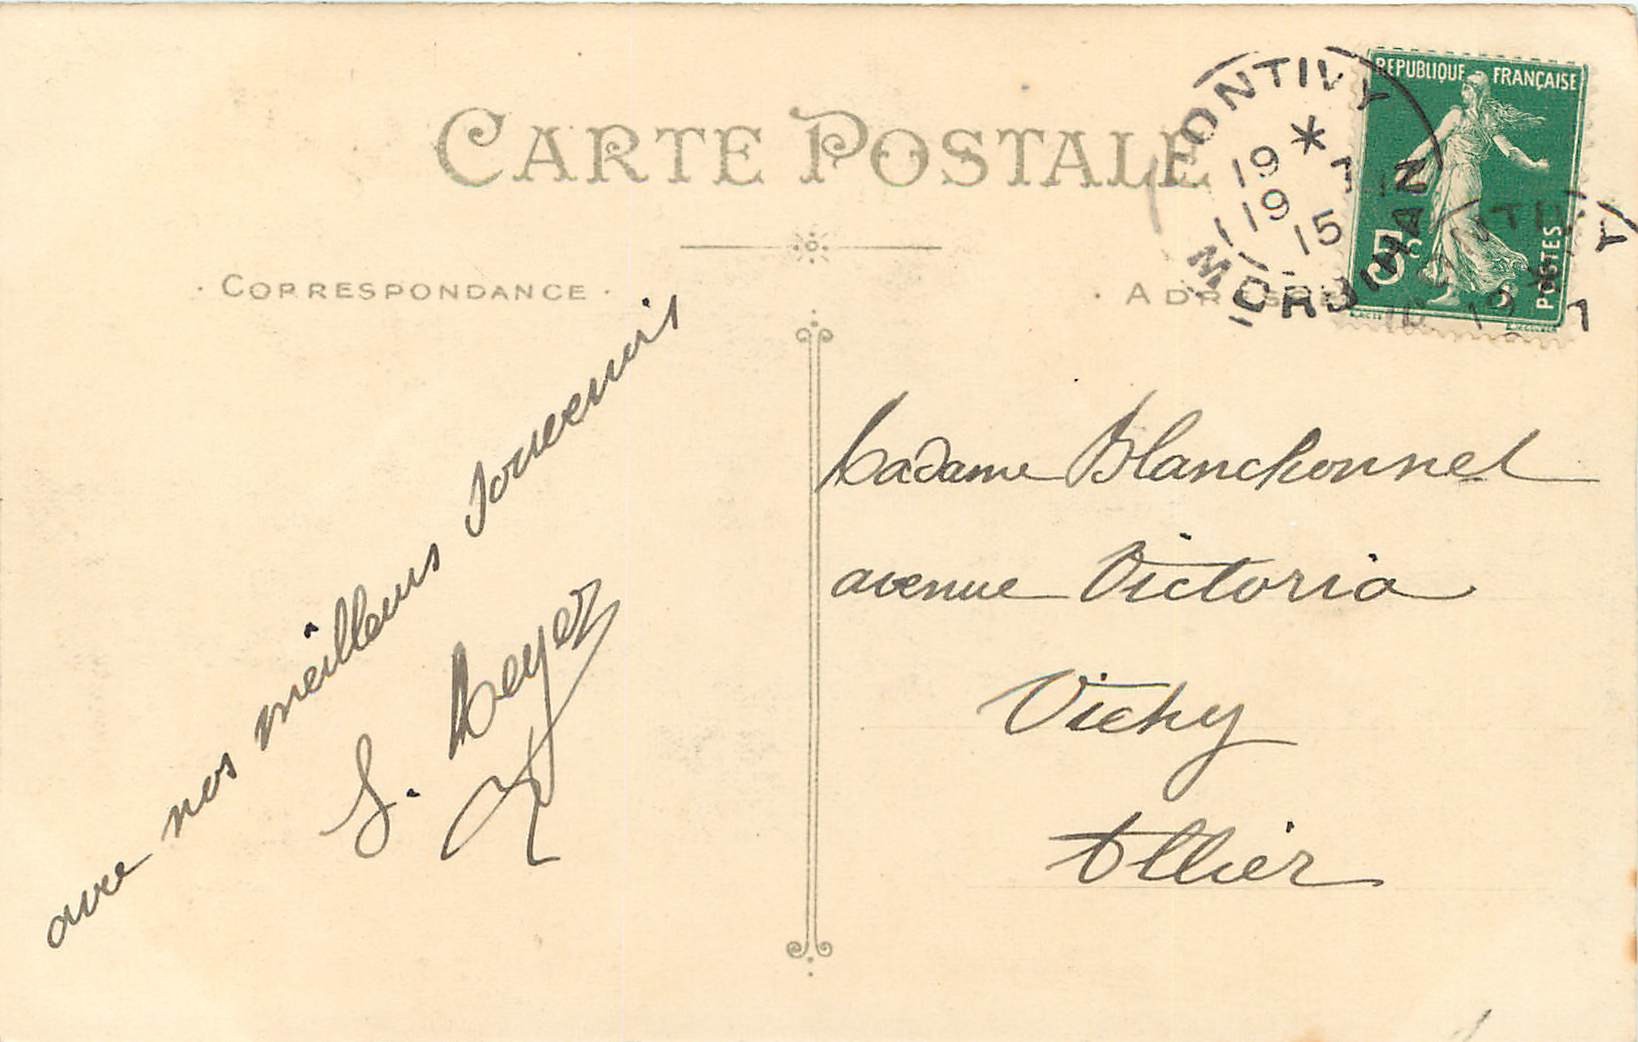 CARTE POSTALE
· CORRESPONDANCE ·
avec nos meilleurs souvenirs
S. Meyer
· ADRESSE
REPUBLIQUE FRANÇAISE
5c
POSTES
PONTIVY
19 * 7
15
MORBIHAN
Madame Blanchonnet
avenue Victoria
Vichy
Allier